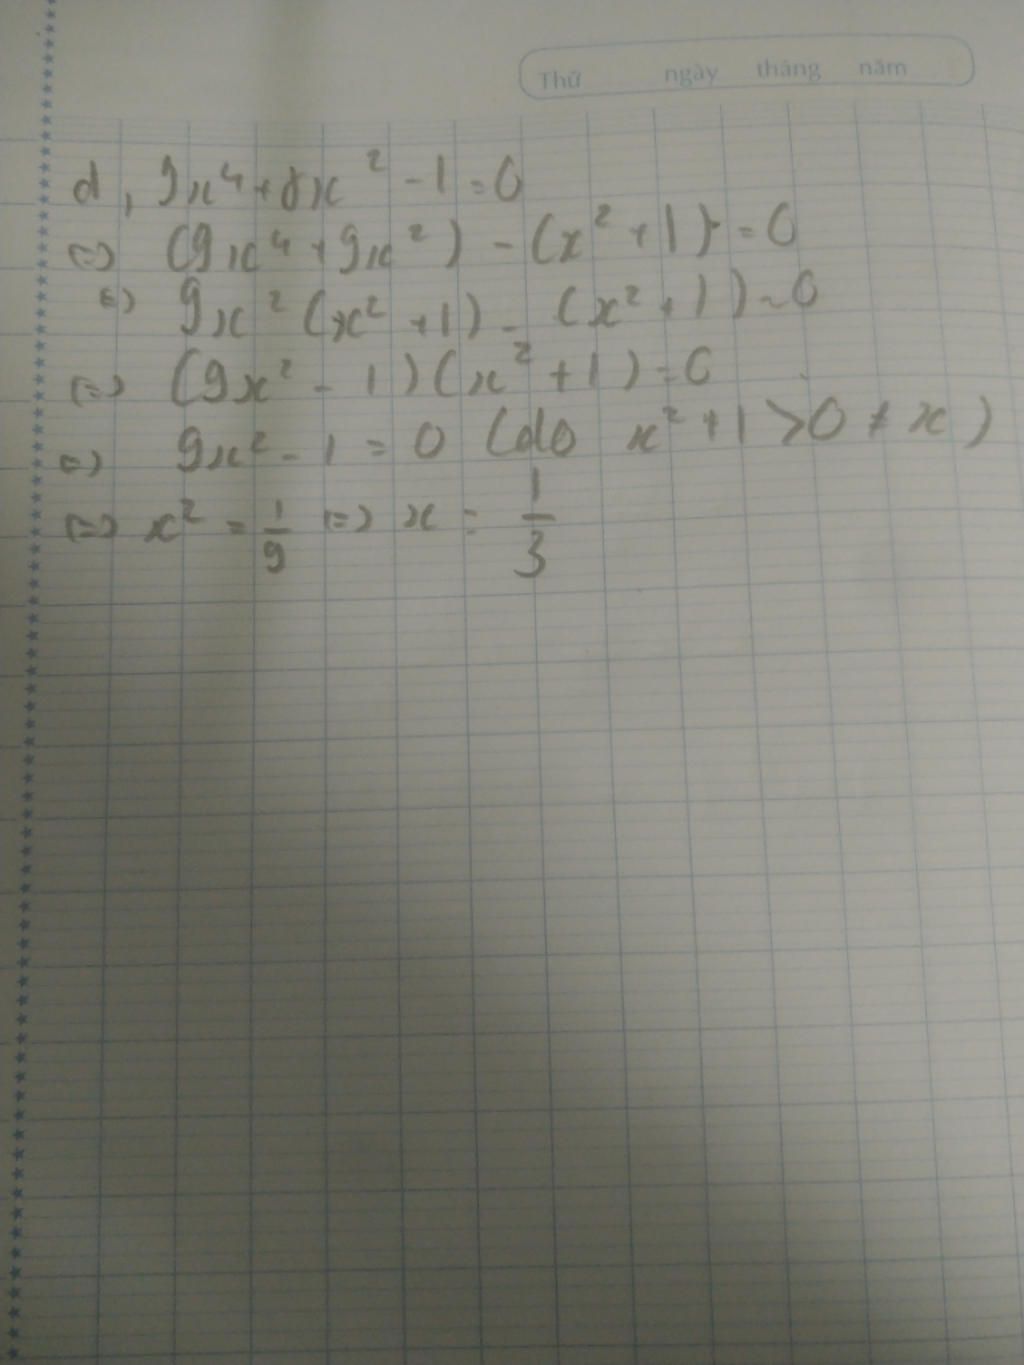 Thứ ngày tháng năm
d, 9x⁴ + 8x² - 1 = 0
(=) (9x⁴ + 9x²) - (x² + 1) = 0
(=) 9x² (x² + 1) - (x² + 1) = 0
(=) (9x² - 1)(x² + 1) = 0
(=) 9x² - 1 = 0 (do x² + 1 > 0 ∀ x)
(=) x² = 1/9 (=) x = 1/3